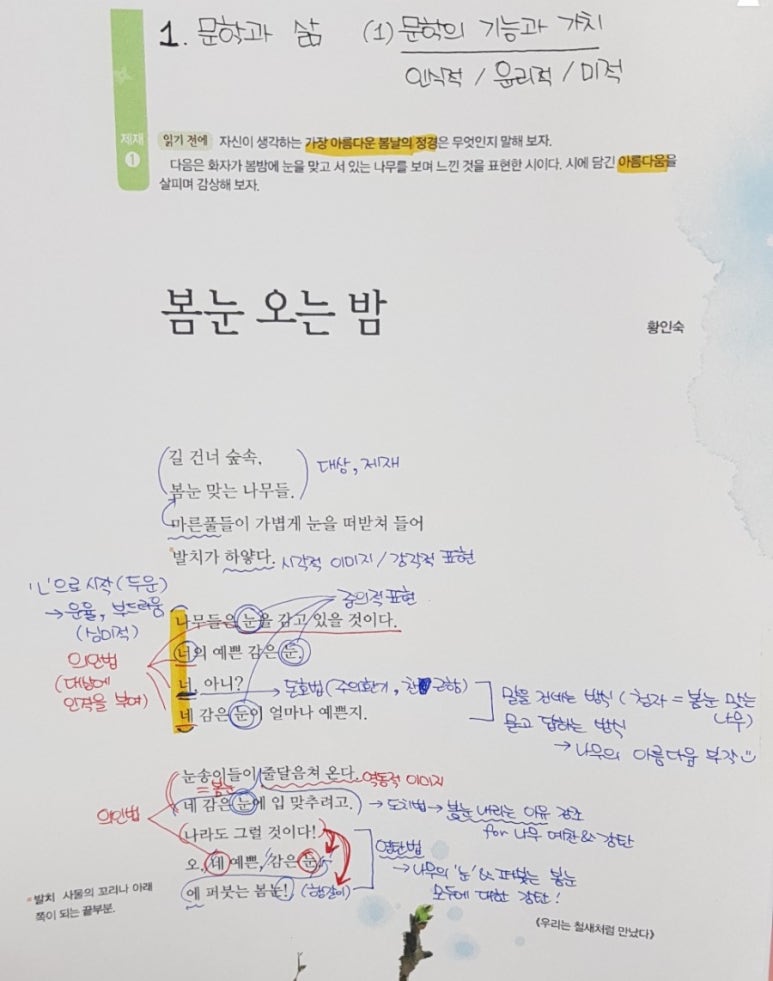 1. 문학과 삶 (1) 문학의 기능과 가치
인식적 / 윤리적 / 미적
제재
1
읽기 전에 자신이 생각하는 가장 아름다운 봄날의 정경은 무엇인지 말해 보자.
다음은 화자가 봄밤에 눈을 맞고 서 있는 나무를 보며 느낀 것을 표현한 시이다. 시에 담긴 아름다움을
살피며 감상해 보자.
봄눈 오는 밤
황인숙
길 건너 숲속,
대상, 제재
봄눈 맞는 나무들.
마른풀들이 가볍게 눈을 떠받쳐 들어
*발치가 하얗다. 시각적 이미지 / 감각적 표현
'ㄴ'으로 시작 (두운)
→ 운율, 부드러움
(심미적)
중의적 표현
나무들은 눈을 감고 있을 것이다.
너의 예쁜 감은 눈.
의인법
(대상에
인격을 부여)
너, 아니?
→ 돈호법 (주의환기, 친근함)
네 감은 눈이 얼마나 예쁜지.
말을 건네는 방식 (청자 = 봄눈 맞는
나무)
묻고 답하는 방식
→ 나무의 아름다움 부각
눈송이들이 줄달음쳐 온다. 역동적 이미지
= 봄눈
네 감은 눈에 입 맞추려고. → 도치법 → 봄눈 내리는 이유 강조
for 나무 예찬 & 감탄
의인법
(나라도 그럴 것이다!)
오, 네 예쁜, 감은 눈,
에 퍼붓는 봄눈! (행갈이)
영탄법
→ 나무의 '눈' & 퍼붓는 봄눈
모두에 대한 감탄!
*발치 사물의 꼬리나 아래
쪽이 되는 끝부분.
《우리는 철새처럼 만났다》